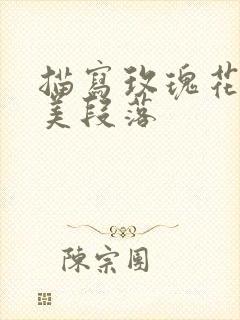 描寫玫瑰花
美段落
陳宗團